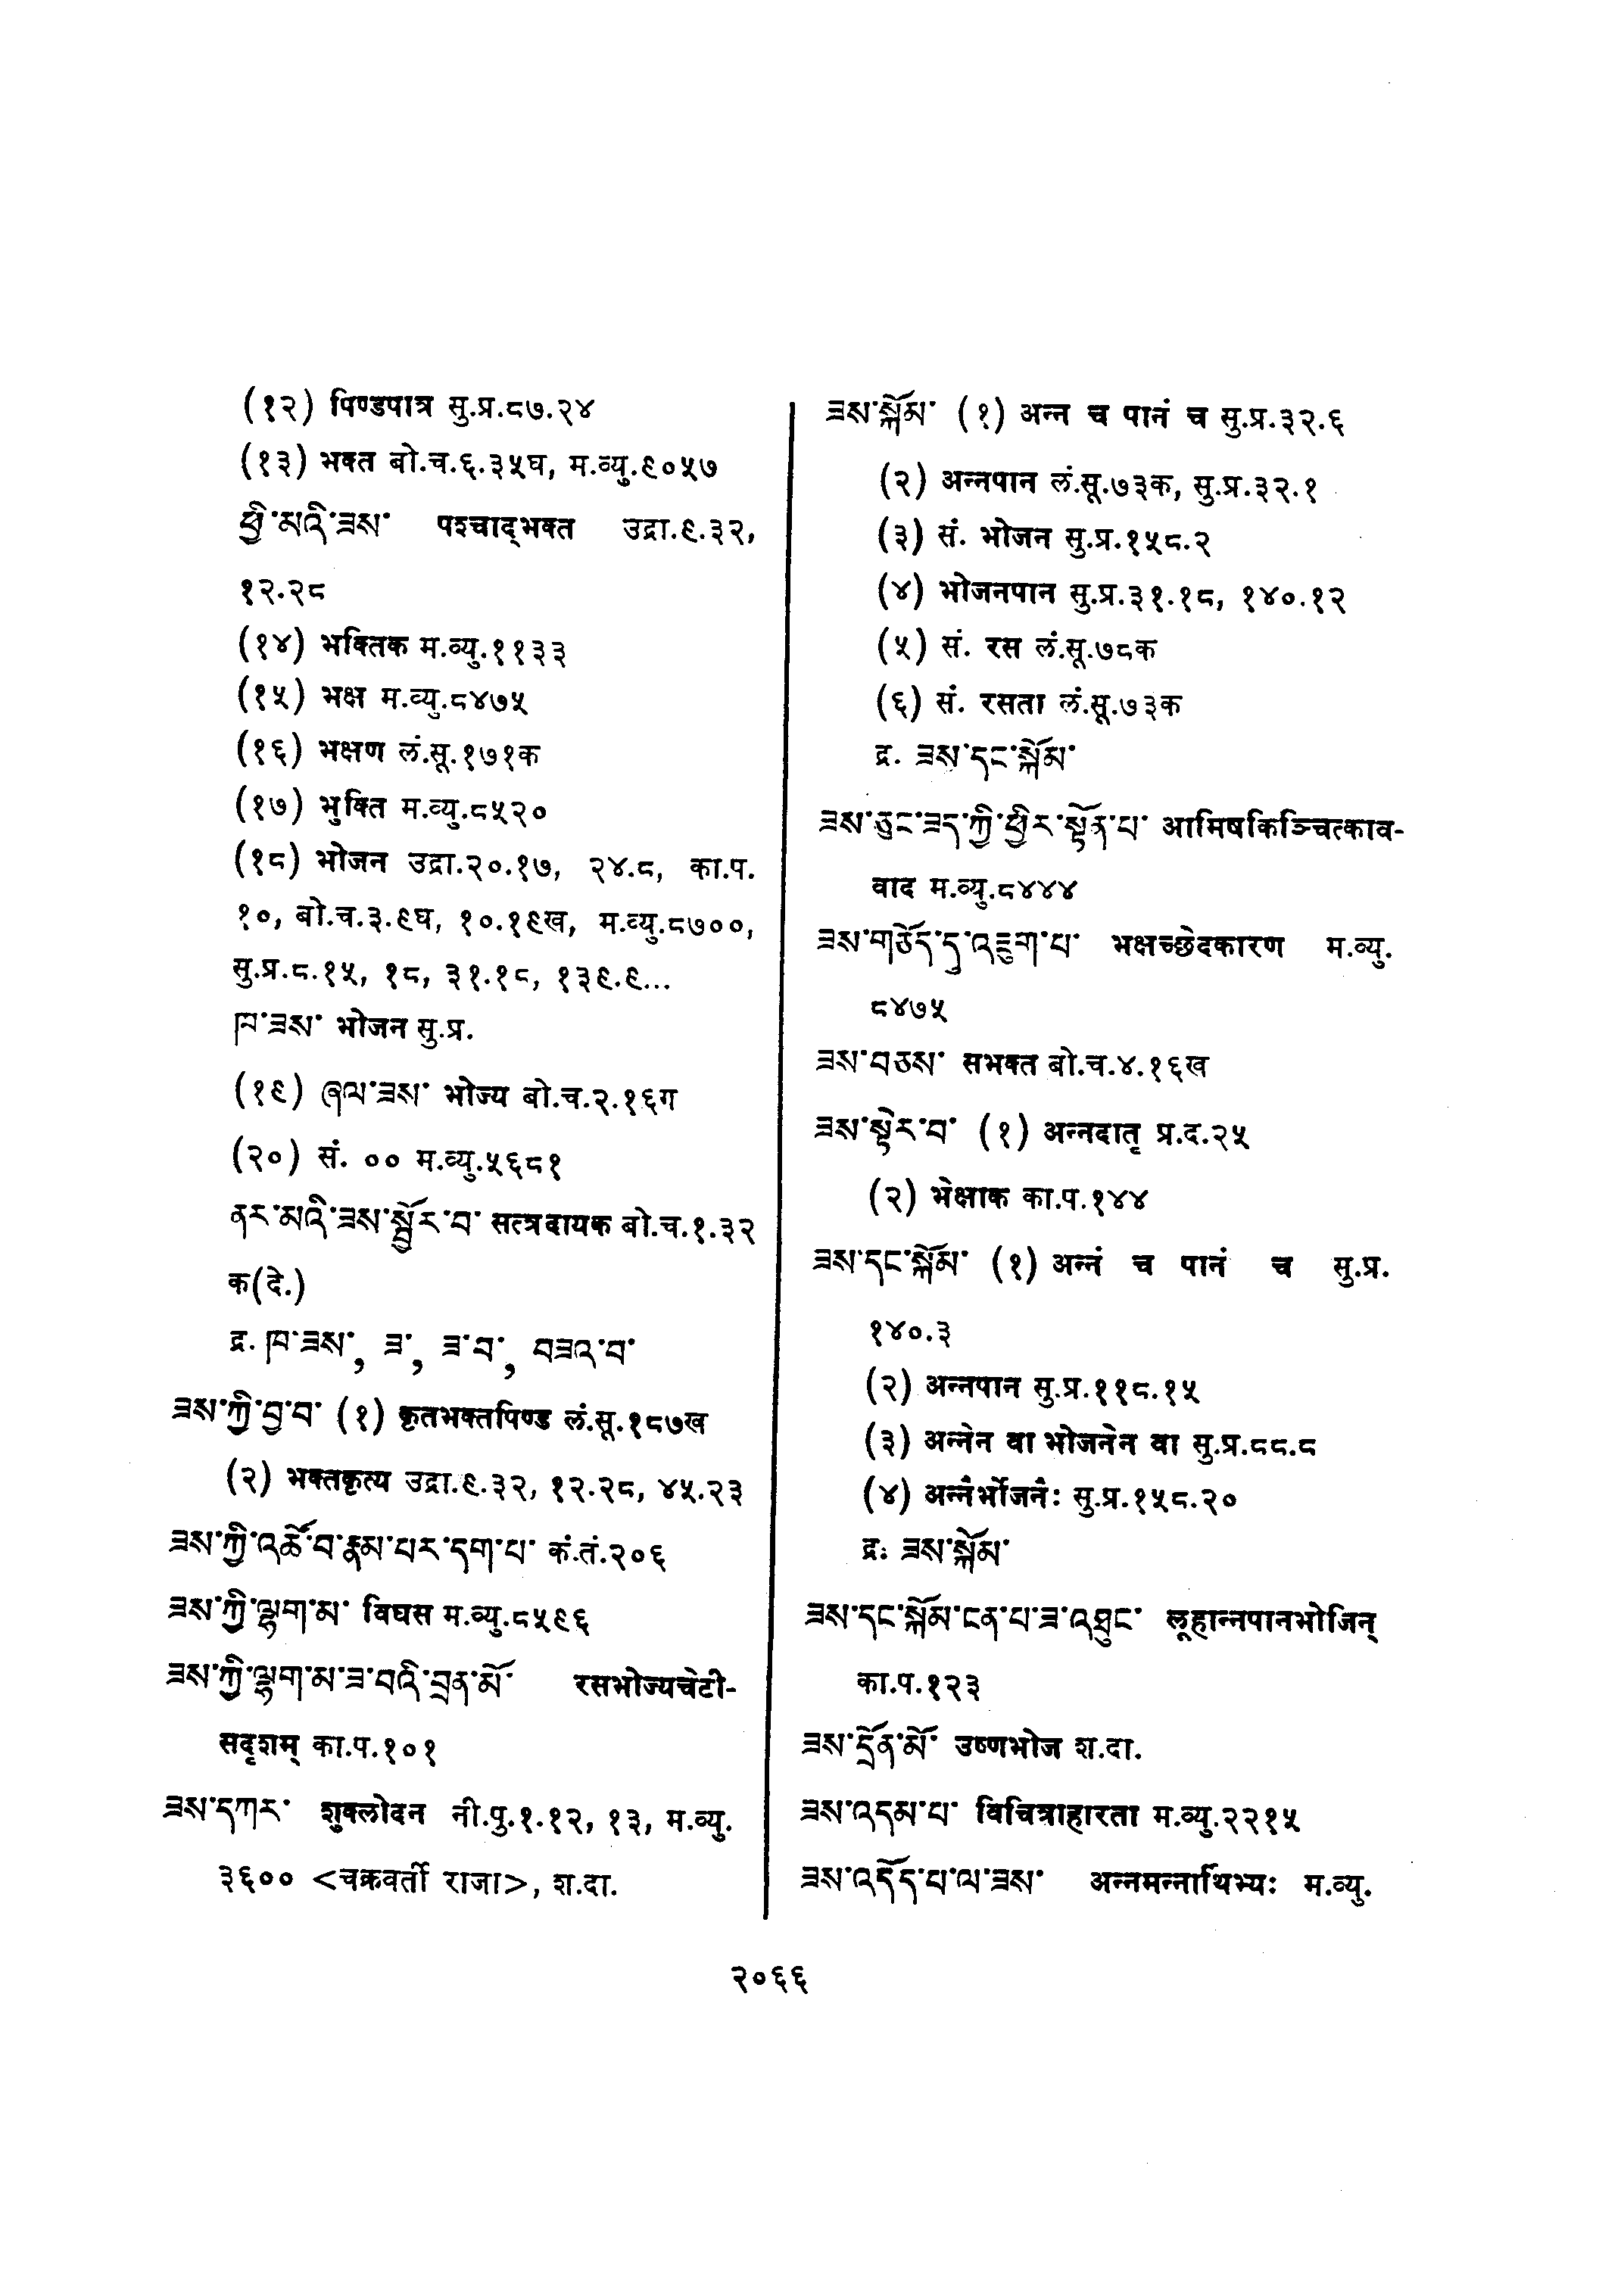 (१२) पिण्डपात्र सु.प्र.८७.२४
(१३) भक्त बो.च.६.३५घ, म.व्यु.९०५७
ཕྱི་མའི་ཟས་ पश्चाद्भक्त उद्रा.९.३२,
१२.२८
(१४) भक्तिक म.व्यु.११३३
(१५) भक्ष म.व्यु.८४७५
(१६) भक्षण लं.सू.१७१क
(१७) भुक्ति म.व्यु.८५२०
(१८) भोजन उद्रा.२०.१७, २४.८, का.प.
१०, बो.च.३.९घ, १०.१९ख, म.व्यु.८७००,
सु.प्र.८.१५, १८, ३१.१८, १३९.९...
ཁ་ཟས་ भोजन सु.प्र.
(१९) ཞལ་ཟས་ भोज्य बो.च.२.१६ग
(२०) सं. ०० म.व्यु.५६८१
ནར་མའི་ཟས་སྦྱོར་བ་ सत्त्रदायक बो.च.१.३२
क(दे.)
द्र. ཁ་ཟས་, ཟ་, ཟ་བ་, བཟའ་བ་
ཟས་ཀྱི་བྱ་བ་ (१) कृतभक्तपिण्ड लं.सू.१८७ख
(२) भक्तकृत्य उद्रा.९.३२, १२.२८, ४५.२३
ཟས་ཀྱི་འཚོ་བ་རྣམ་པར་དག་པ་ कं.तं.२०६
ཟས་ཀྱི་ལྷག་མ་ विघस म.व्यु.८५९६
ཟས་ཀྱི་ལྷག་མ་ཟ་བའི་བྲན་མོ་ रसभोज्यचेटी-
सदृशम् का.प.१०१
ཟས་དཀར་ शुक्लोदन नी.पु.१.१२, १३, म.व्यु.
३६०० <चक्रवर्ती राजा>, श.दा.
ཟས་སྐོམ་ (१) अन्न च पानं च सु.प्र.३२.६
(२) अन्नपान लं.सू.७३क, सु.प्र.३२.१
(३) सं. भोजन सु.प्र.१५८.२
(४) भोजनपान सु.प्र.३१.१८, १४०.१२
(५) सं. रस लं.सू.७८क
(६) सं. रसता लं.सू.७३क
द्र. ཟས་དང་སྐོམ་
ཟས་ཅུང་ཟད་ཀྱི་ཕྱིར་སྟོན་པ་ आमिषकिञ्चित्काव-
वाद म.व्यु.८४४४
ཟས་གཅོད་དུ་འཇུག་པ་ भक्षच्छेदकारण म.व्यु.
८४७५
ཟས་བཅས་ सभक्त बो.च.४.१६ख
ཟས་སྟེར་བ་ (१) अन्नदातृ प्र.द.२५
(२) भेक्षाक का.प.१४४
ཟས་དང་སྐོམ་ (१) अन्नं च पानं च सु.प्र.
१४०.३
(२) अन्नपान सु.प्र.११८.१५
(३) अन्नेन वा भोजनेन वा सु.प्र.८८.८
(४) अन्नैर्भोजनैः सु.प्र.१५८.२०
द्र: ཟས་སྐོམ་
ཟས་དང་སྐོམ་ངན་པ་ཟ་འཐུང་ लूहान्नपानभोजिन्
का.प.१२३
ཟས་དྲོན་མོ་ उष्णभोज श.दा.
ཟས་འདམ་པ་ विचित्राहारता म.व्यु.२२१५
ཟས་འདོད་པ་ལ་ཟས་ अन्नमन्नार्थिभ्यः म.व्यु.
२०६६